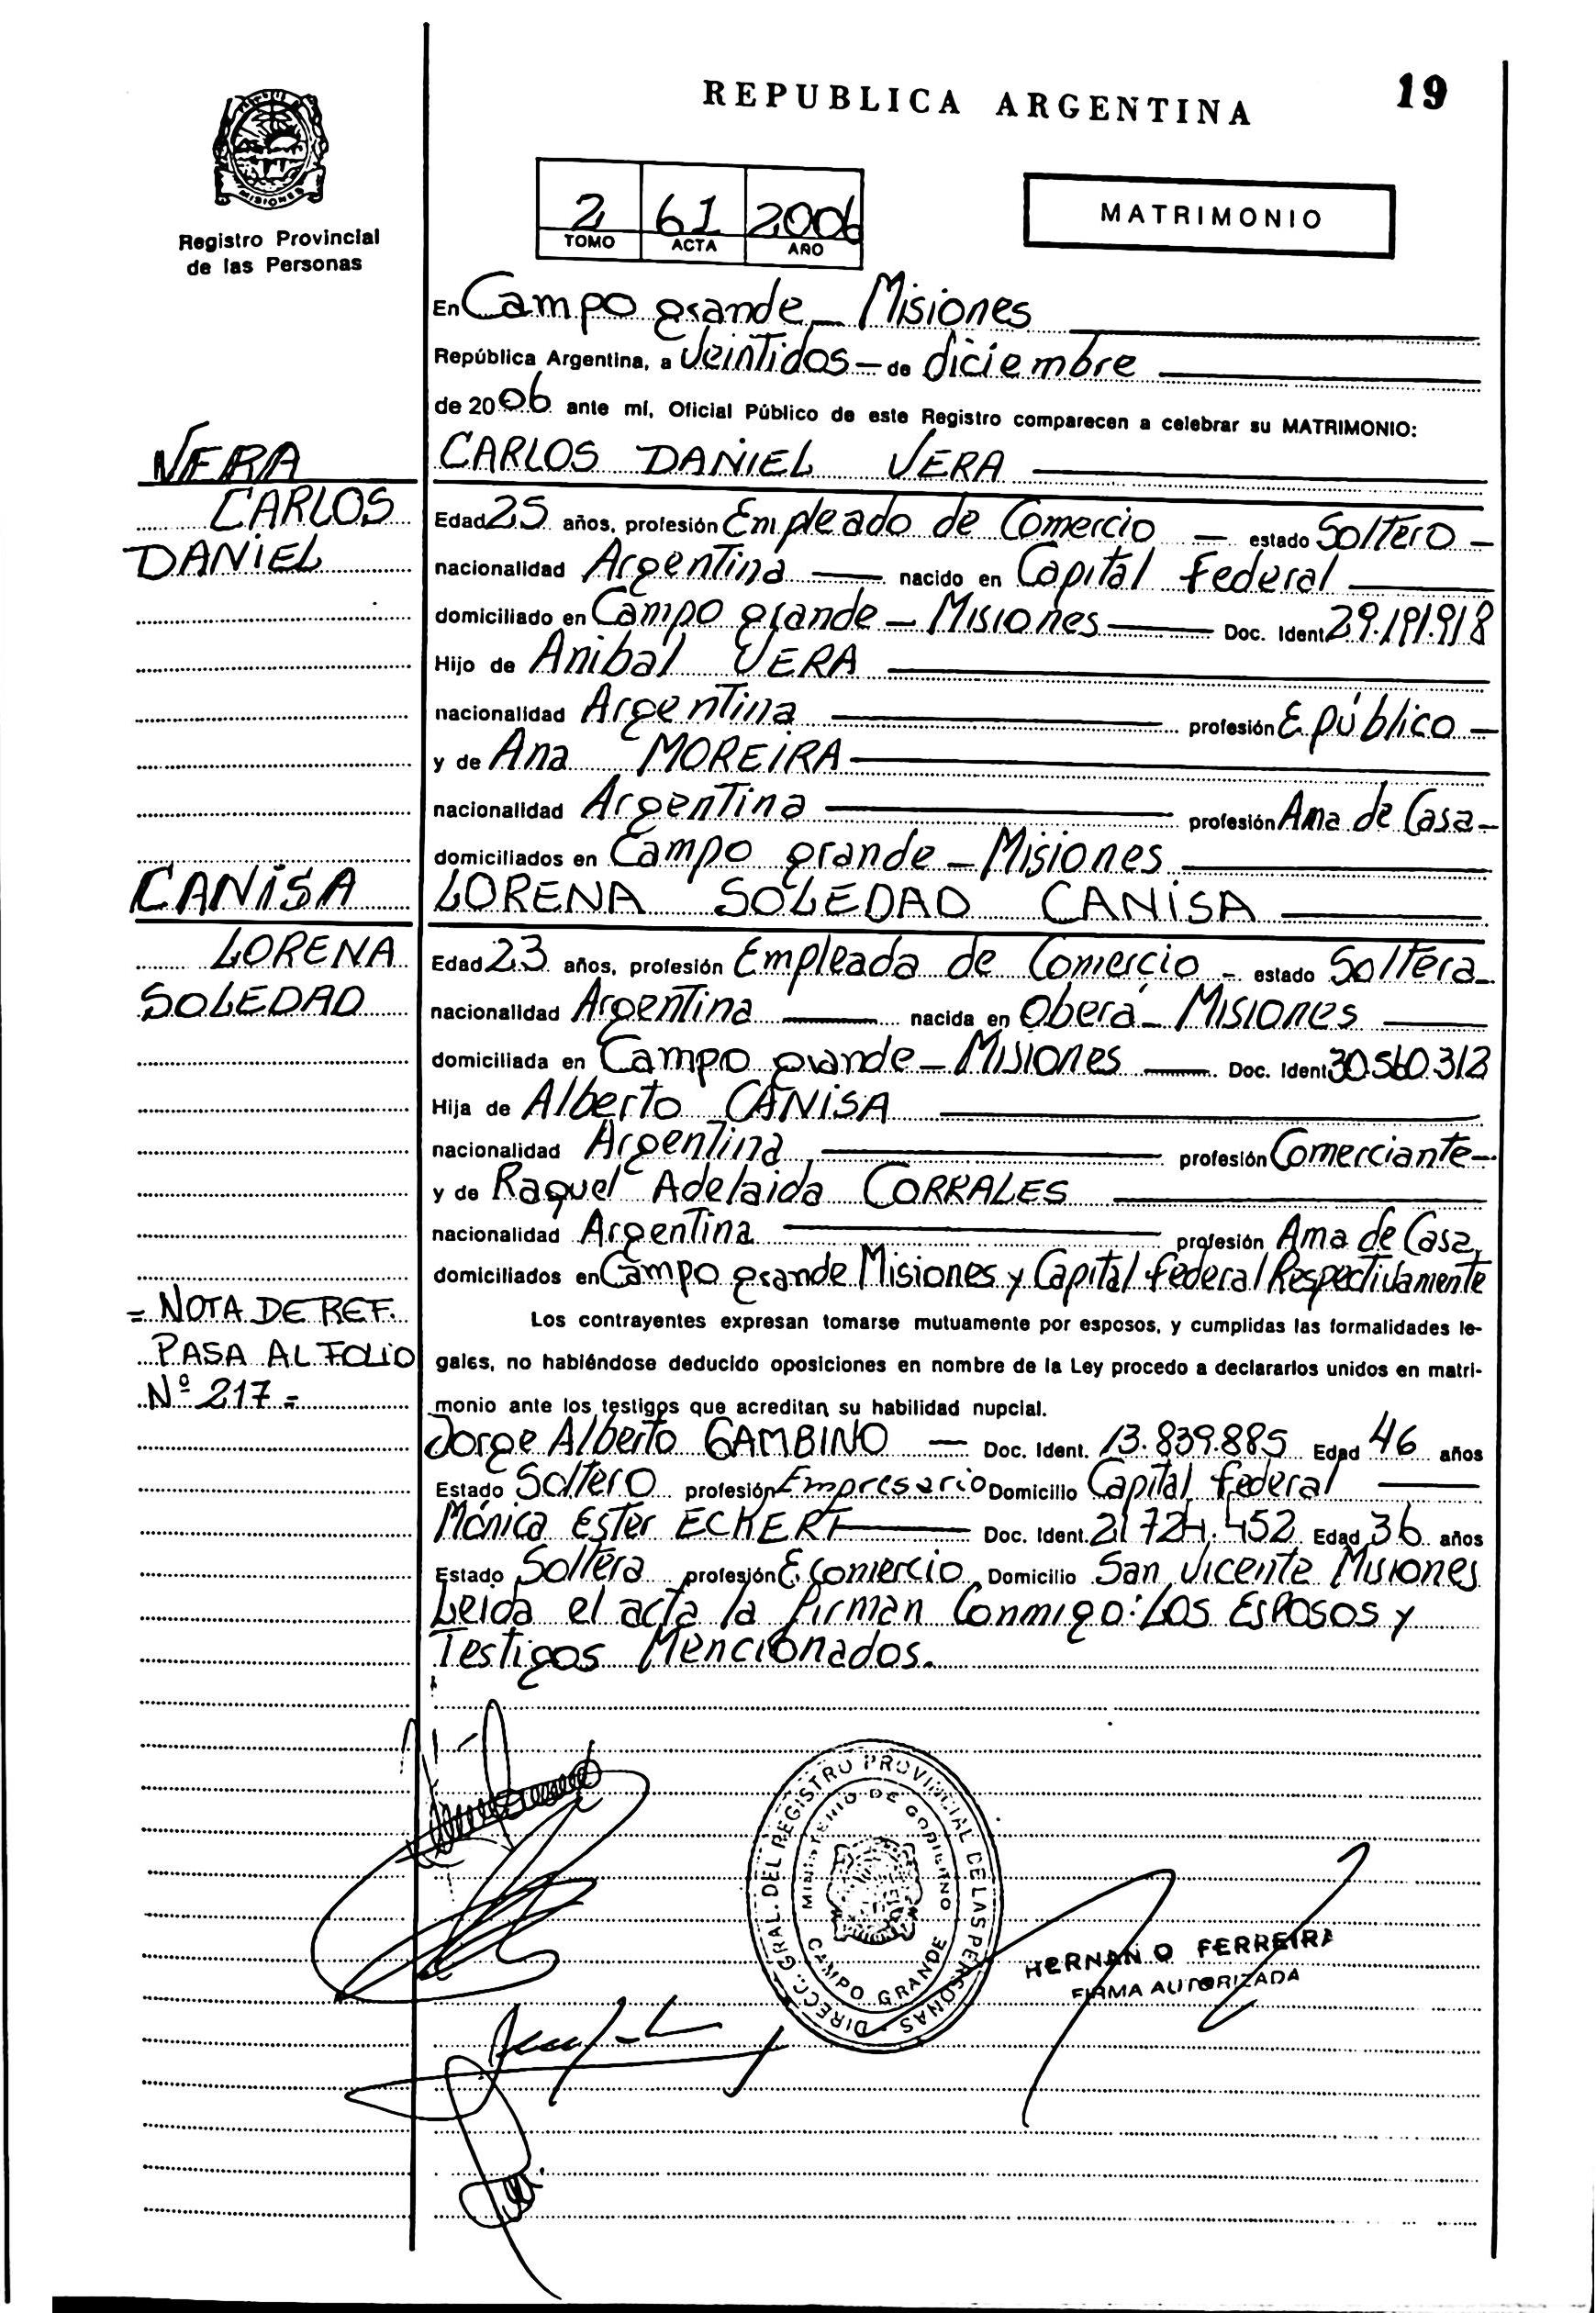 REPUBLICA ARGENTINA
19
MISIONES
Registro Provincial
de las Personas
2 61 2006
TOMO ACTA AÑO
MATRIMONIO
En Campo grande - Misiones
República Argentina, a Veintidos - de diciembre
de 2006 ante mí, Oficial Público de este Registro comparecen a celebrar su MATRIMONIO:
VERA
CARLOS
DANIEL
CARLOS DANIEL VERA
Edad 25 años, profesión Empleado de Comercio - estado Soltero -
nacionalidad Argentina - nacido en Capital Federal
domiciliado en Campo grande - Misiones - Doc. Ident 29.191.918
Hijo de Anibal VERA
nacionalidad Argentina profesión E. público -
y de Ana MOREIRA
nacionalidad Argentina profesión Ama de Casa -
domiciliados en Campo grande - Misiones
CANISA
LORENA
SOLEDAD
LORENA SOLEDAD CANISA
Edad 23 años, profesión Empleada de Comercio - estado Soltera -
nacionalidad Argentina - nacida en Oberá - Misiones
domiciliada en Campo grande - Misiones - Doc. Ident 30.560.312
Hija de Alberto CANISA
nacionalidad Argentina profesión Comerciante -
y de Raquel Adelaida CORRALES
nacionalidad Argentina profesión Ama de Casa,
domiciliados en Campo grande Misiones y Capital Federal Respectivamente
= NOTA DE REF.
PASA AL FOLIO
Nº 217 =
Los contrayentes expresan tomarse mutuamente por esposos, y cumplidas las formalidades le-
gales, no habiéndose deducido oposiciones en nombre de la Ley procedo a declararlos unidos en matri-
monio ante los testigos que acreditan su habilidad nupcial.
Jorge Alberto GAMBINO - Doc. Ident. 13.839.885 Edad 46 años
Estado Soltero profesión Empresario Domicilio Capital Federal
Mónica Ester ECKERT Doc. Ident. 21.724.452 Edad 36 años
Estado Soltera profesión E comercio Domicilio San Vicente Misiones
Leida el acta la firman Conmigo: LOS ESPOSOS y
Testigos Mencionados.
DIRECC. GRAL. DEL REGISTRO PROVINCIAL DE LAS PERSONAS
MINISTERIO DE GOBIERNO
CAMPO GRANDE
FERREIRA
FIRMA AUTORIZADA